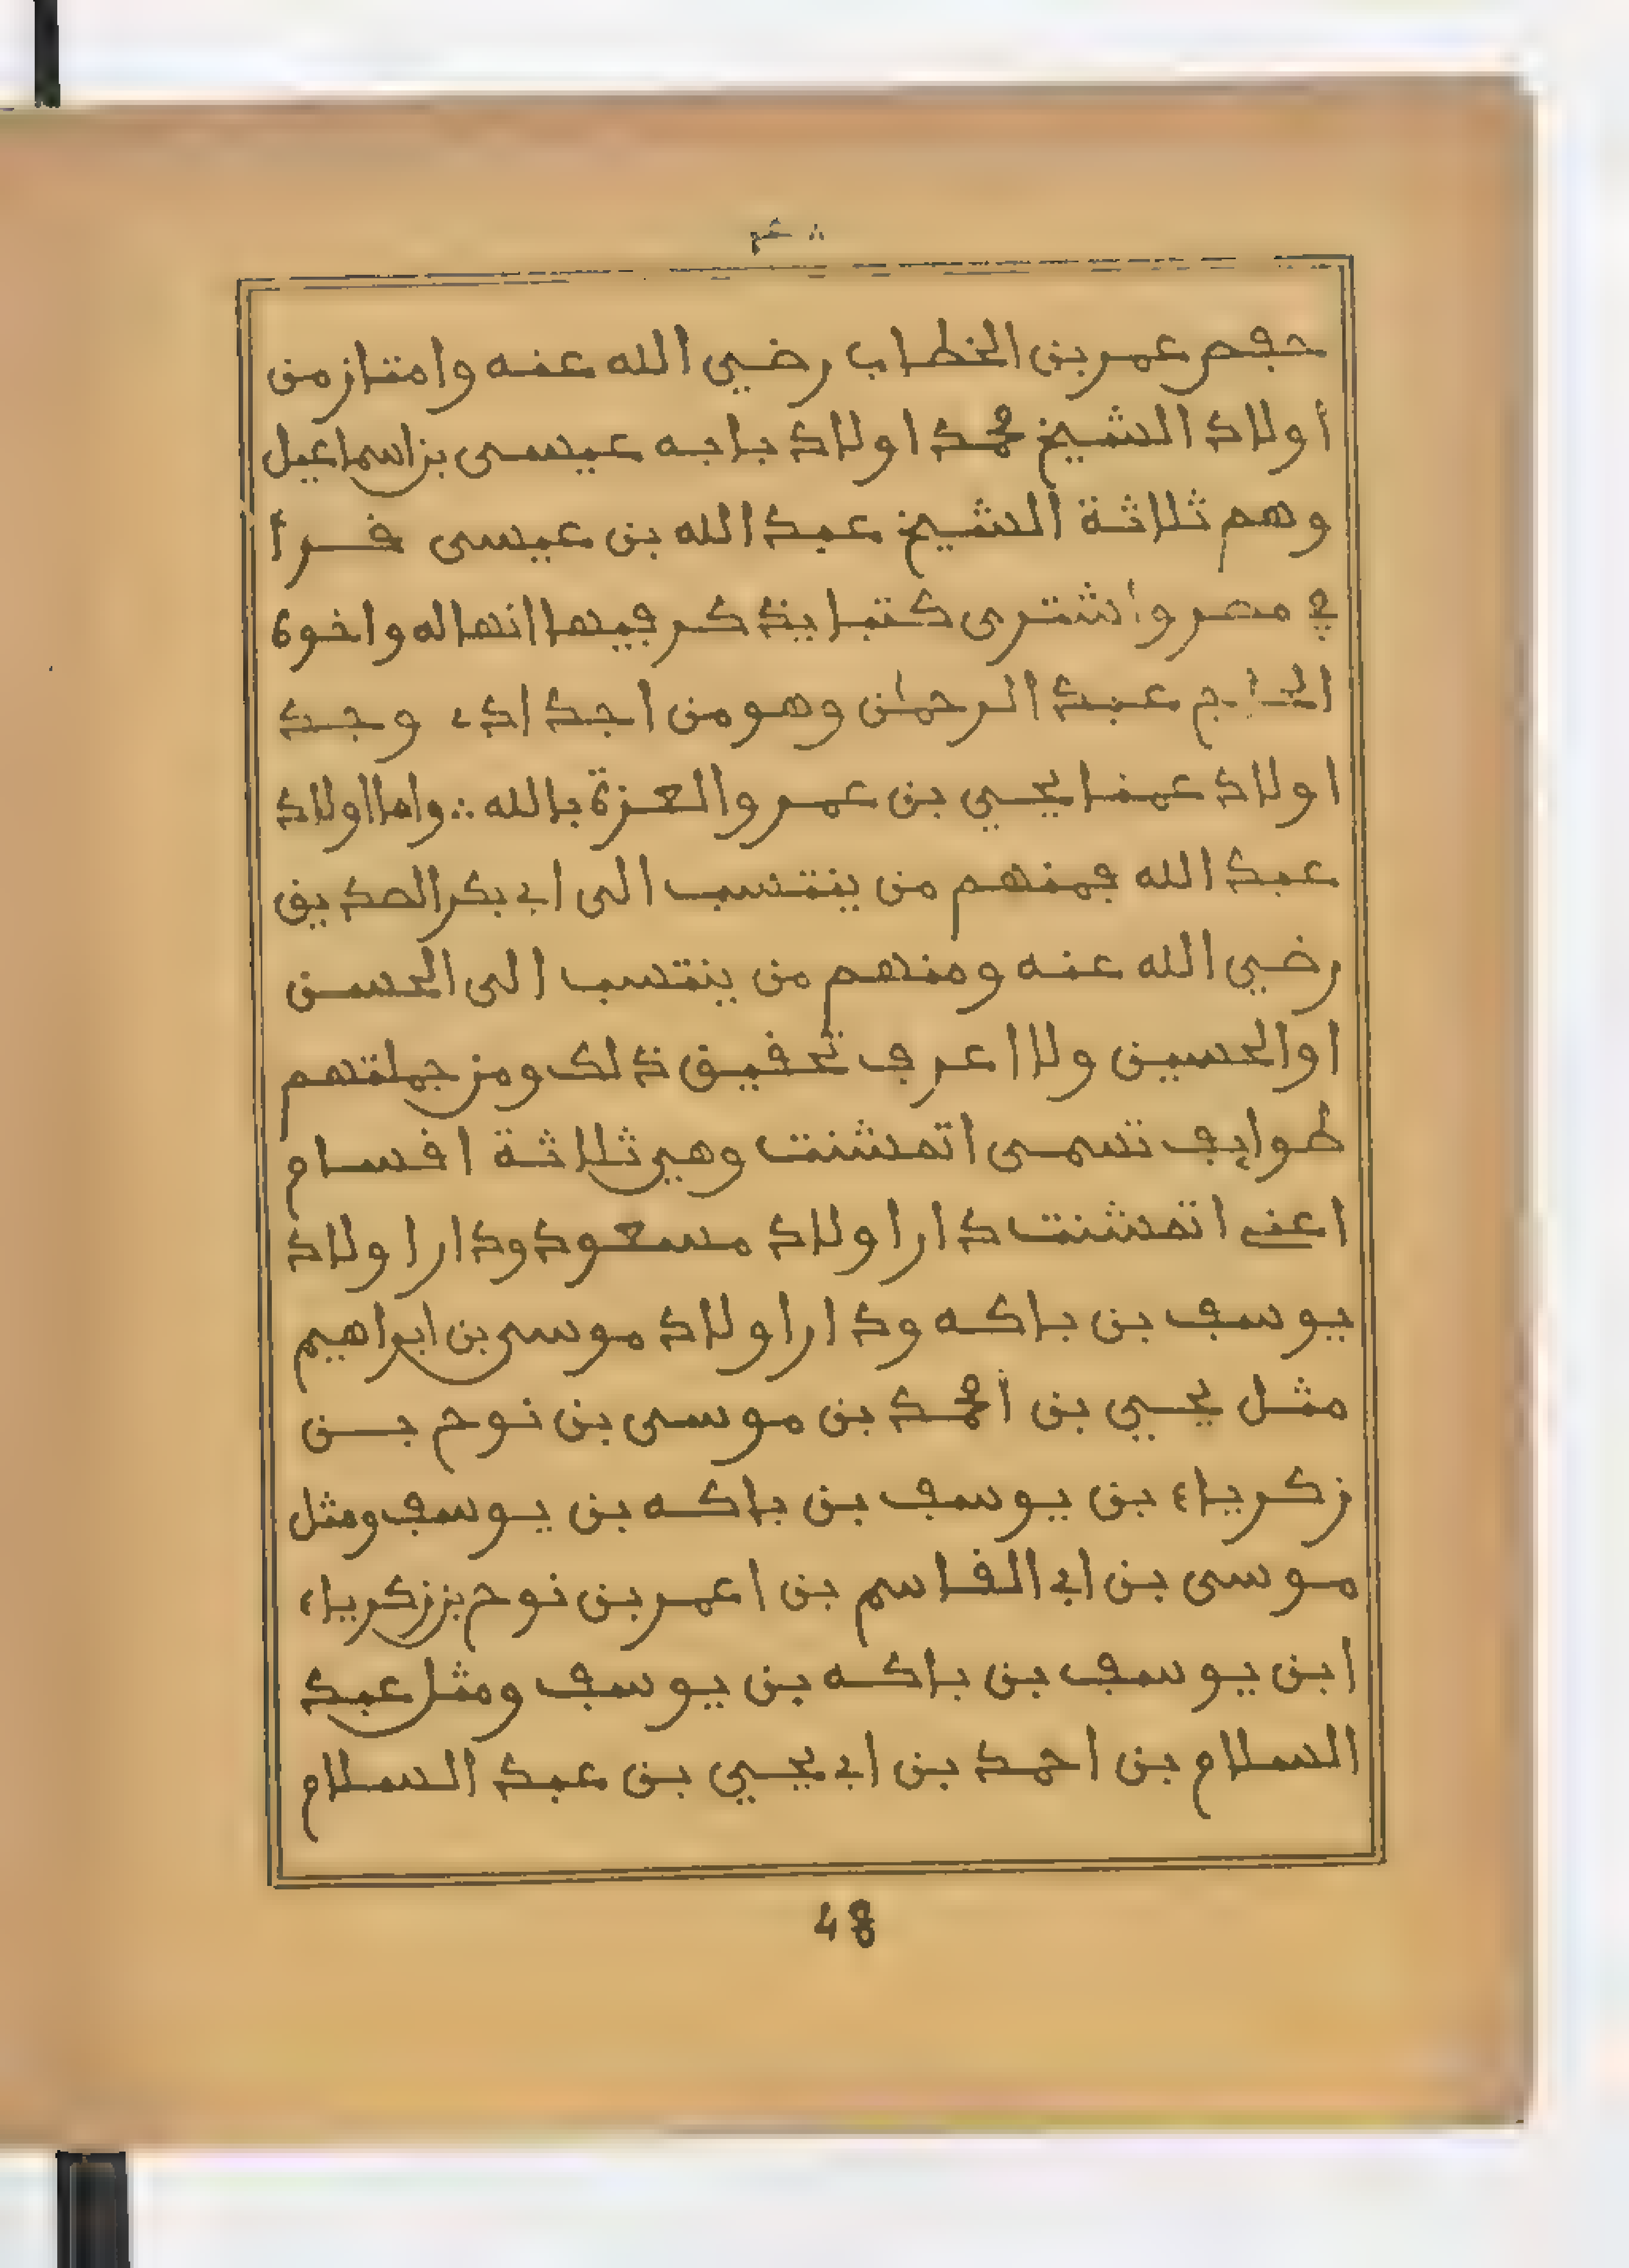 حفص عمر بن الخطاب رضي الله عنه وامتاز من
أولاد الشيخ محمد اولاد بابه عيسى بن اسماعيل
وهم ثلاثة الشيخ عبد الله بن عيسى قرأ
في مصر وأشترى كتبا يذكر فيها انها له واخوة
الحاج عبد الرحمٰن وهو من اجداد، وجد
اولاد عمنا يحيي بن عمر والعزة بالله ∴ واما اولاد
عبد الله فمنهم من ينتسب الى ابي بكر الصديق
رضي الله عنه ومنهم من ينتسب الى الحسن
او الحسين ولا اعرف تحقيق ذلك ومن جملتهم
طوايف تسمى اتمشنت وهي ثلاثة اقسام
اعني اتمشنت دار اولاد مسعود ودار اولاد
يوسف بن باكه ودار اولاد موسى بن ابراهيم
مثل يحيي بن أحمد بن موسى بن نوح بن
زكرياء بن يوسف بن باكه بن يوسف ومثل
موسى بن ابي القاسم بن اعمر بن نوح بن زكرياء
ابن يوسف بن باكه بن يوسف ومثل عبد
السلام بن احمد بن ابي يحيي بن عبد السلام
48